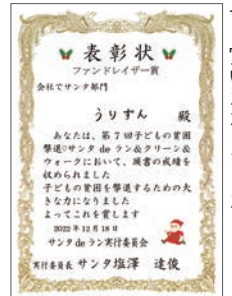 表彰状
ファンドレイザー賞
会社でサンタ部門
うりずん 殿
あなたは、第7回子どもの貧困
撃退♡サンタ de ラン&クリーン&
ウォークにおいて、頭書の成績を
収められました
子どもの貧困を撃退するための大
きな力になりました
よってこれを賞します
2022年12月18日
サンタ de ラン実行委員会
実行委員長 サンタ塩澤 達俊